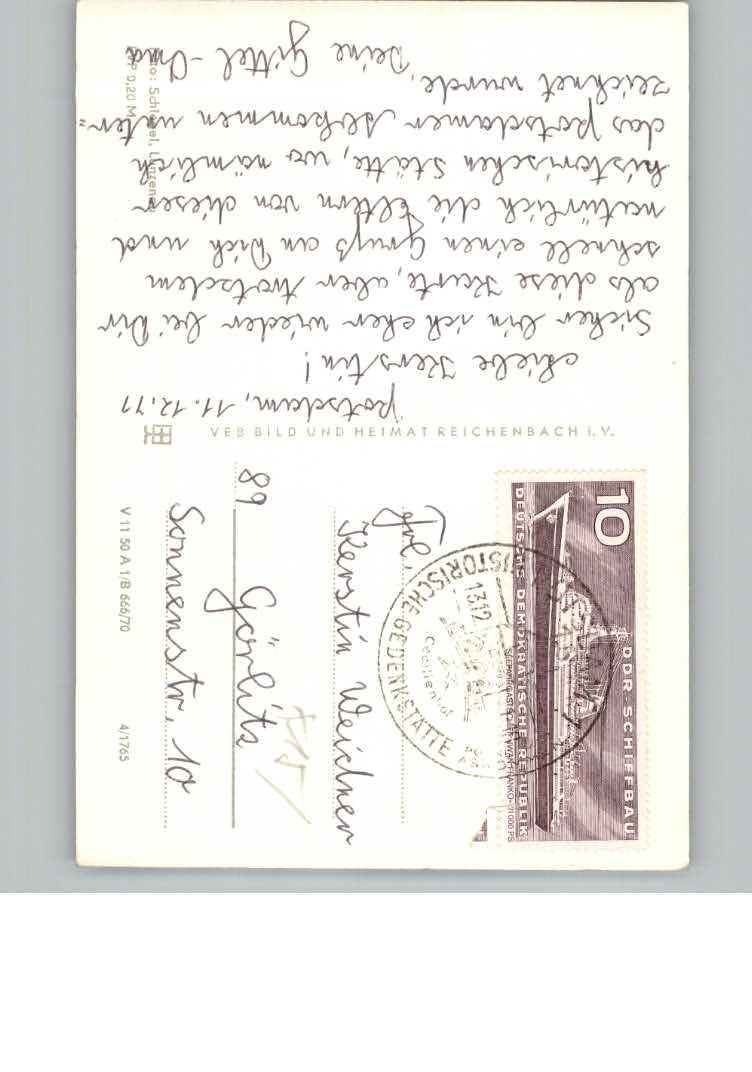 Potsdam, 11.12.71
Liebe Kerstin!
Sicher bin ich eher wieder bei Dir
als diese Karte, aber trotzdem
schnell einen Gruß an Dich und
natürlich die Eltern von dieser
historischen Stätte, wo nämlich
das Potsdamer Abkommen unter=
zeichnet wurde.
Deine Gittel-Oma
Foto: Schlegel,
0,20 M
VEB BILD UND HEIMAT REICHENBACH i. V.
V 11 50 A 1/B 666/70
4/1765
Frl.
Kerstin Weichner
89
Görlitz
Sonnenstr. 10
10
DDR-SCHIFFBAU
DEUTSCHE DEMOKRATISCHE REPUBLIK
HISTORISCHE GEDENKSTÄTTE
Cecilienhof
13.12